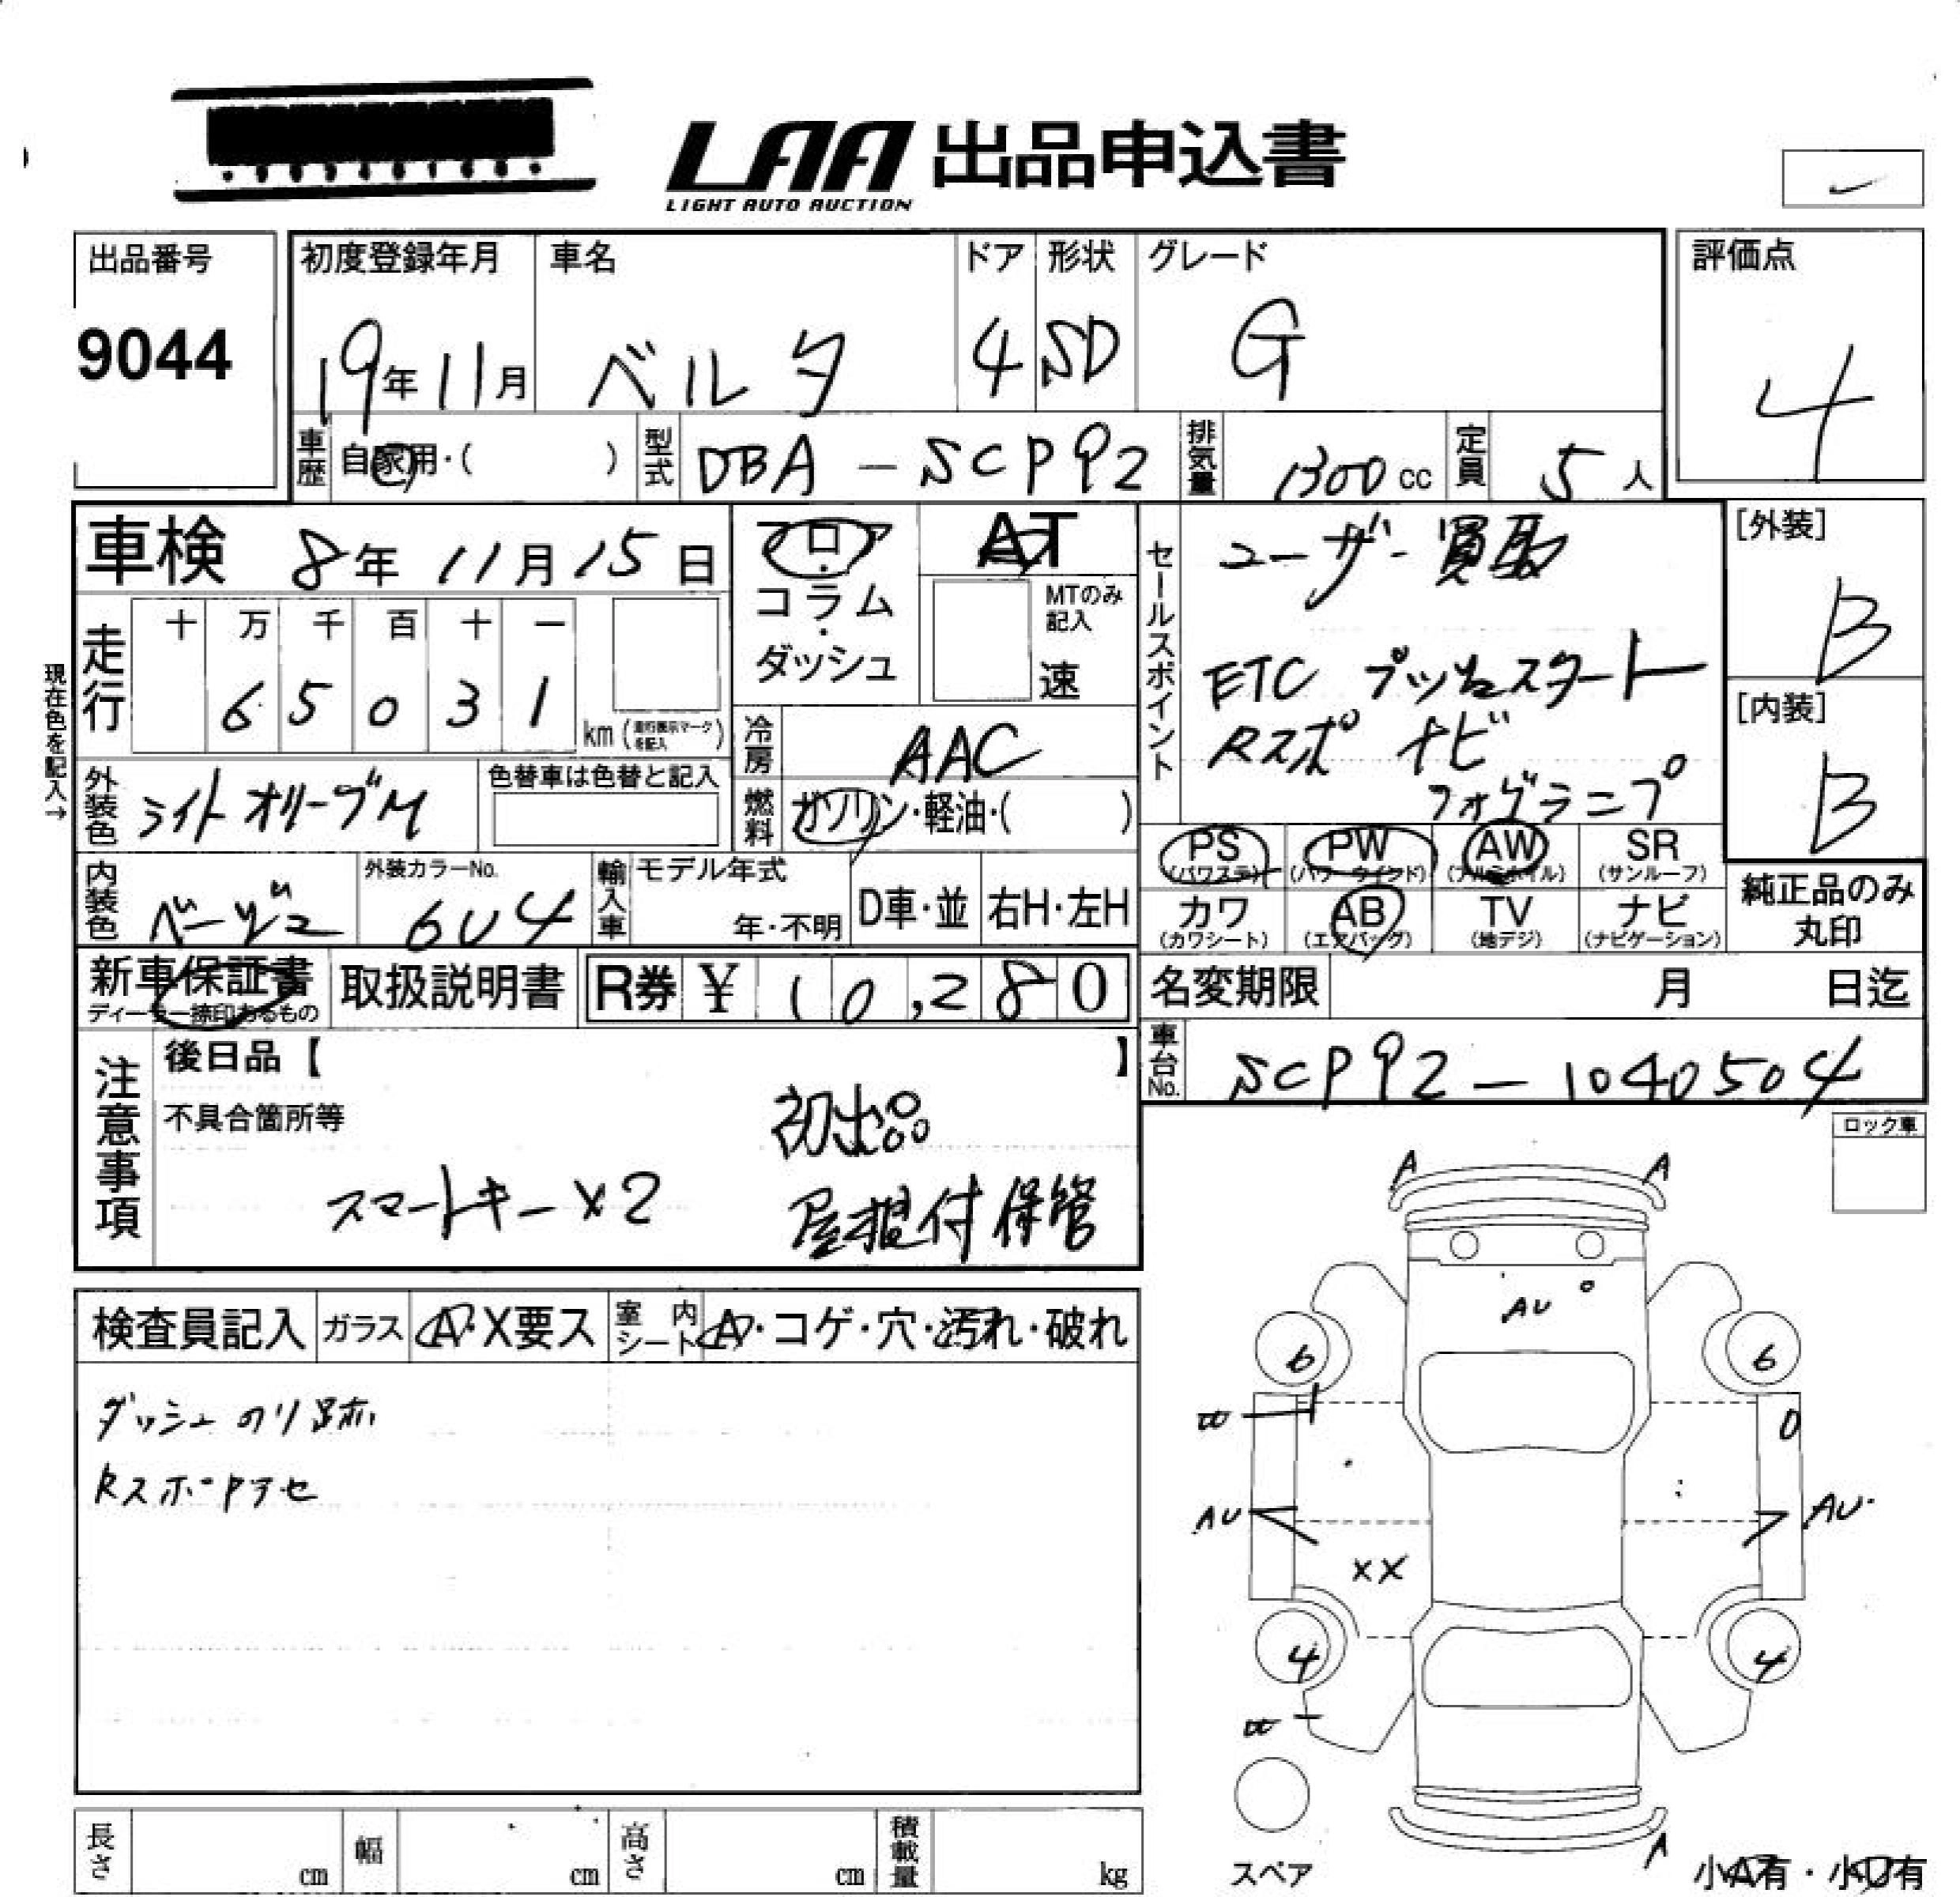 LAA 出品申込書
LIGHT AUTO AUCTION
出品番号
9044
初度登録年月
19年11月
車名
ベルタ
ドア
4
形状
SD
グレード
G
評価点
4
車歴
自家用・( )
型式
DBA-SCP92
排気量
1300cc
定員
5人
車検 8年11月15日
フロア・コラム・ダッシュ
AT
MTのみ記入
速
走行
十 万 千 百 十 一
6 5 0 3 1
km(走行表示マークを記入)
現在色を記入→
冷房
AAC
燃料
ガソリン・軽油・( )
外装色
ライトオリーブM
色替車は色替と記入
内装色
ベージュ
外装カラーNo.
6U4
輸入車
モデル年式
年・不明
D車・並
右H・左H
セールスポイント
ユーザー買取
ETC プッシュスタート
Rスポ ナビ
フォグランプ
[外装]
B
[内装]
B
PS (パワステ)
PW (パワーウインド)
AW (アルミホイル)
SR (サンルーフ)
カワ (カワシート)
AB (エアバッグ)
TV (地デジ)
ナビ (ナビゲーション)
純正品のみ
丸印
新車保証書
ディーラー捺印あるもの
取扱説明書
R券 ¥ 10,280
名変期限 月 日迄
車台No.
SCP92-1040504
注意事項
後日品【 】
不具合箇所等
初出品
スマートキー×2
屋根付保管
ロック車
検査員記入
ガラス
A・X要ス
室内シート
A・コゲ・穴・汚れ・破れ
ダッシュのり跡
A A
AU
6 6
AU AU
XX
4 4
A
スペア
小A有・小U有
長さ cm
幅 cm
高さ cm
積載量 kg